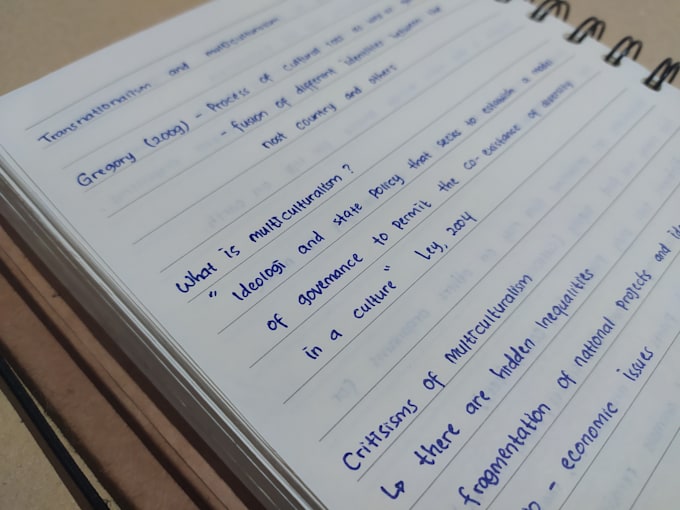 Transnationalism and multiculturalism
Gregory (2009) - Process of cultural
- fusion of different identities between
host country and others
What is multiculturalism?
" Ideologi and state policy that seeks to establish a
of governance to permit the co-existance of diversity
in a culture " Ley, 2004
Critisisms of Multiculturalism
↳ there are hidden Inequalities
fragmentation of national projects and
- economic issues